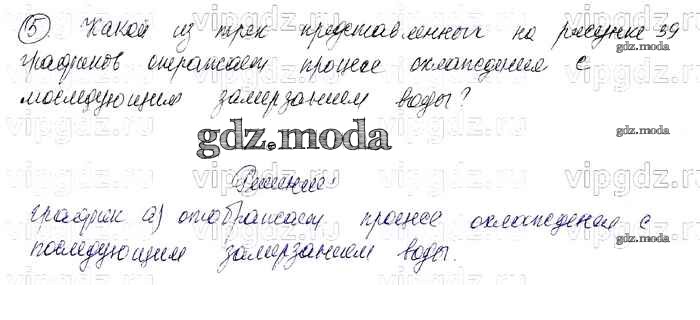 ⑤ Какой из трех представленных на рисунке 39
графиков отражает процесс охлаждения с
последующим замерзанием воды?
gdz.moda
Решение:
график а) отображает процесс охлаждения с
последующим замерзанием воды.